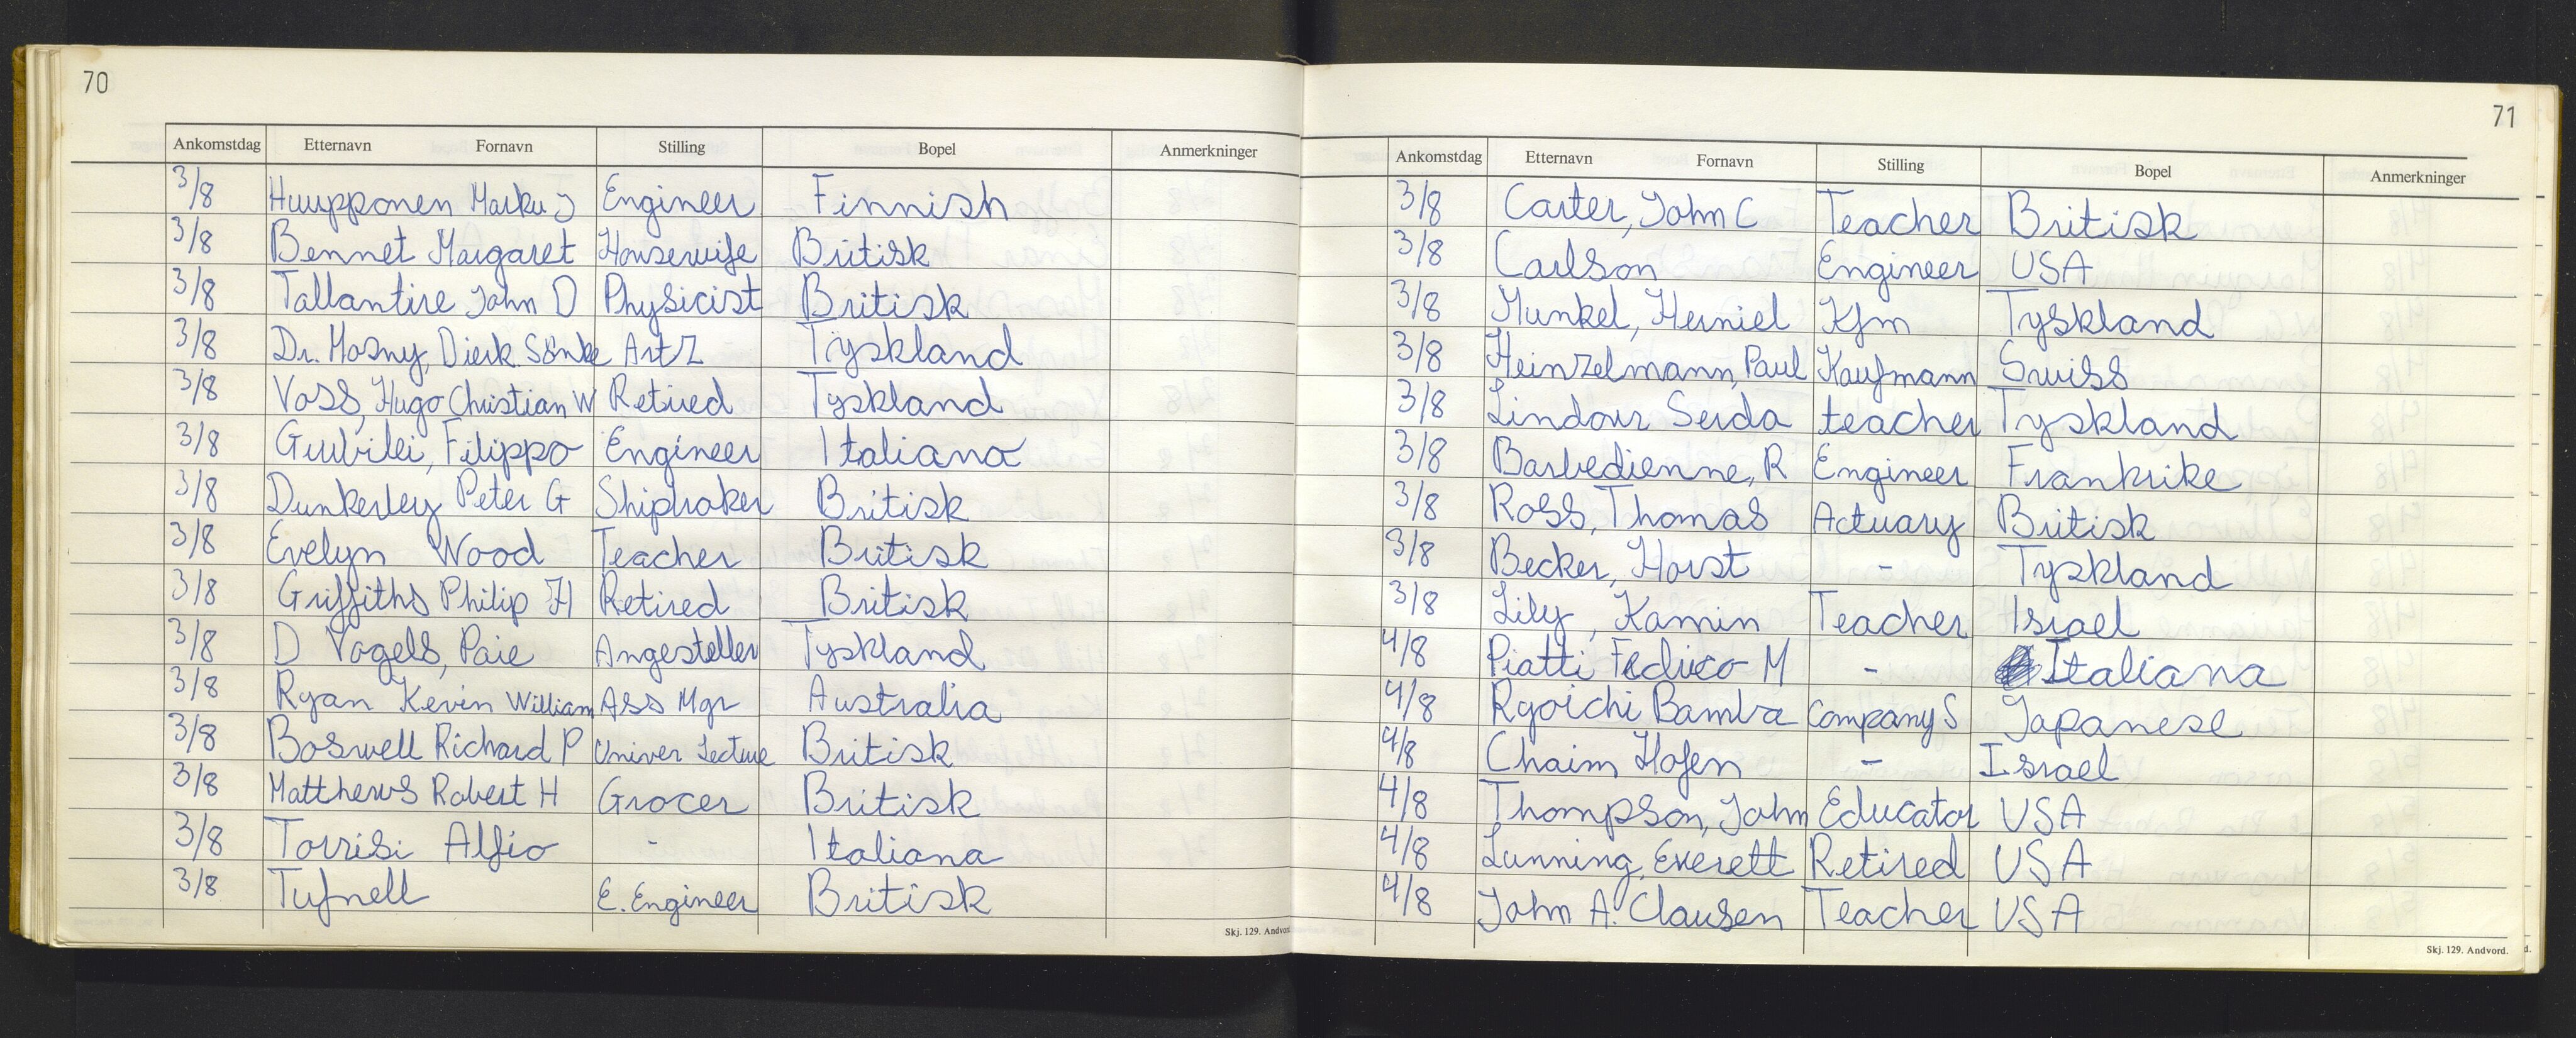 70
Ankomstdag Etternavn Fornavn Stilling Bopel Anmerkninger
3/8 Huupponen Marku J Engineer Finnish
3/8 Bennet Margaret Housewife Britisk
3/8 Tallantire John D Physicist Britisk
3/8 Dr. Mosny, Dierk Sönke Artz Tyskland
3/8 Voss, Hugo Christian W Retired Tyskland
3/8 Filippo Engineer Italiana
3/8 Dunkerley Peter G Shipbroker Britisk
3/8 Evelyn Wood Teacher Britisk
3/8 Griffiths Philip H Retired Britisk
3/8 D Vogels, Paie Angesteller Tyskland
3/8 Ryan Kevin William Ass Mgr Australia
3/8 Boswell Richard P Univer Lecture Britisk
3/8 Matthews Robert H Grocer Britisk
3/8 Torrisi Alfio - Italiana
3/8 Tufnell E. Engineer Britisk
Skj. 129. Andvord
71
Ankomstdag Etternavn Fornavn Stilling Bopel Anmerkninger
3/8 Carter, John C Teacher Britisk
3/8 Carlson Engineer USA
3/8 Munkel, Herniel Kfm Tyskland
3/8 Heinzelmann, Paul Kaufmann Swiss
3/8 Lindour Serda teacher Tyskland
3/8 Barbedienne, R Engineer Frankrike
3/8 Ross, Thomas Actuary Britisk
3/8 Becker, Horst - Tyskland
3/8 Lily, Kamin Teacher Israel
4/8 Piatti Fedrico M - Italiana
4/8 Ryoichi Bamba Company S Japanese
4/8 Chaim Hofen - Israel
4/8 Thompson, John Educator USA
4/8 Lunning, Everett Retired USA
4/8 John A. Clausen Teacher USA
Skj. 129. Andvord.